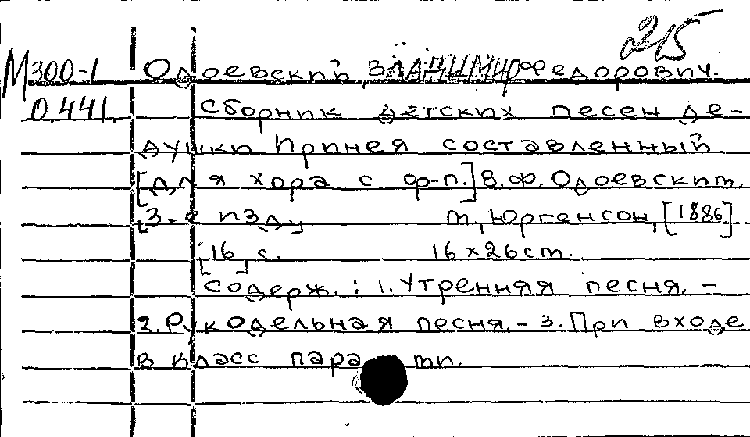 215
М300-1 Одоевский, Владимир Федорович.
О.441. Сборник детских песен де-
душки Иринея составленный
[для хора с ф-п.] В.Ф. Одоевским.
[3-е изд.] м, Юргенсон, [1886]
[16] с. 16×26cm.
Содерж.: 1. Утренняя песня. –
2. Рукодельная песня. – 3. При входе
в класс пара mn.